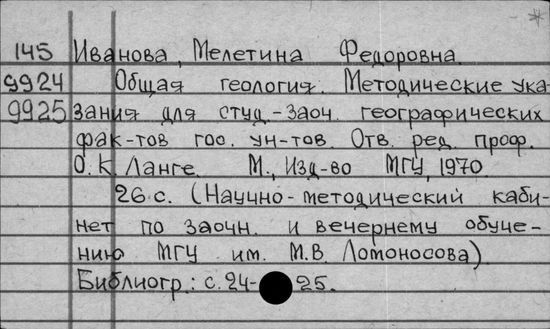 145 Иванова, Мелетина Федоровна.
9924 Общая геология. Методические ука-
9925 зания для студ-заоч. географических
фак-тов гос. ун-тов. Отв. ред. проф.
О.К. Ланге. М., Изд-во МГУ, 1970
26 с. (Научно-методический каби-
нет по заочн. и вечернему обуче-
нию МГУ им. М.В. Ломоносова).
Библиогр.: с. 24-25.